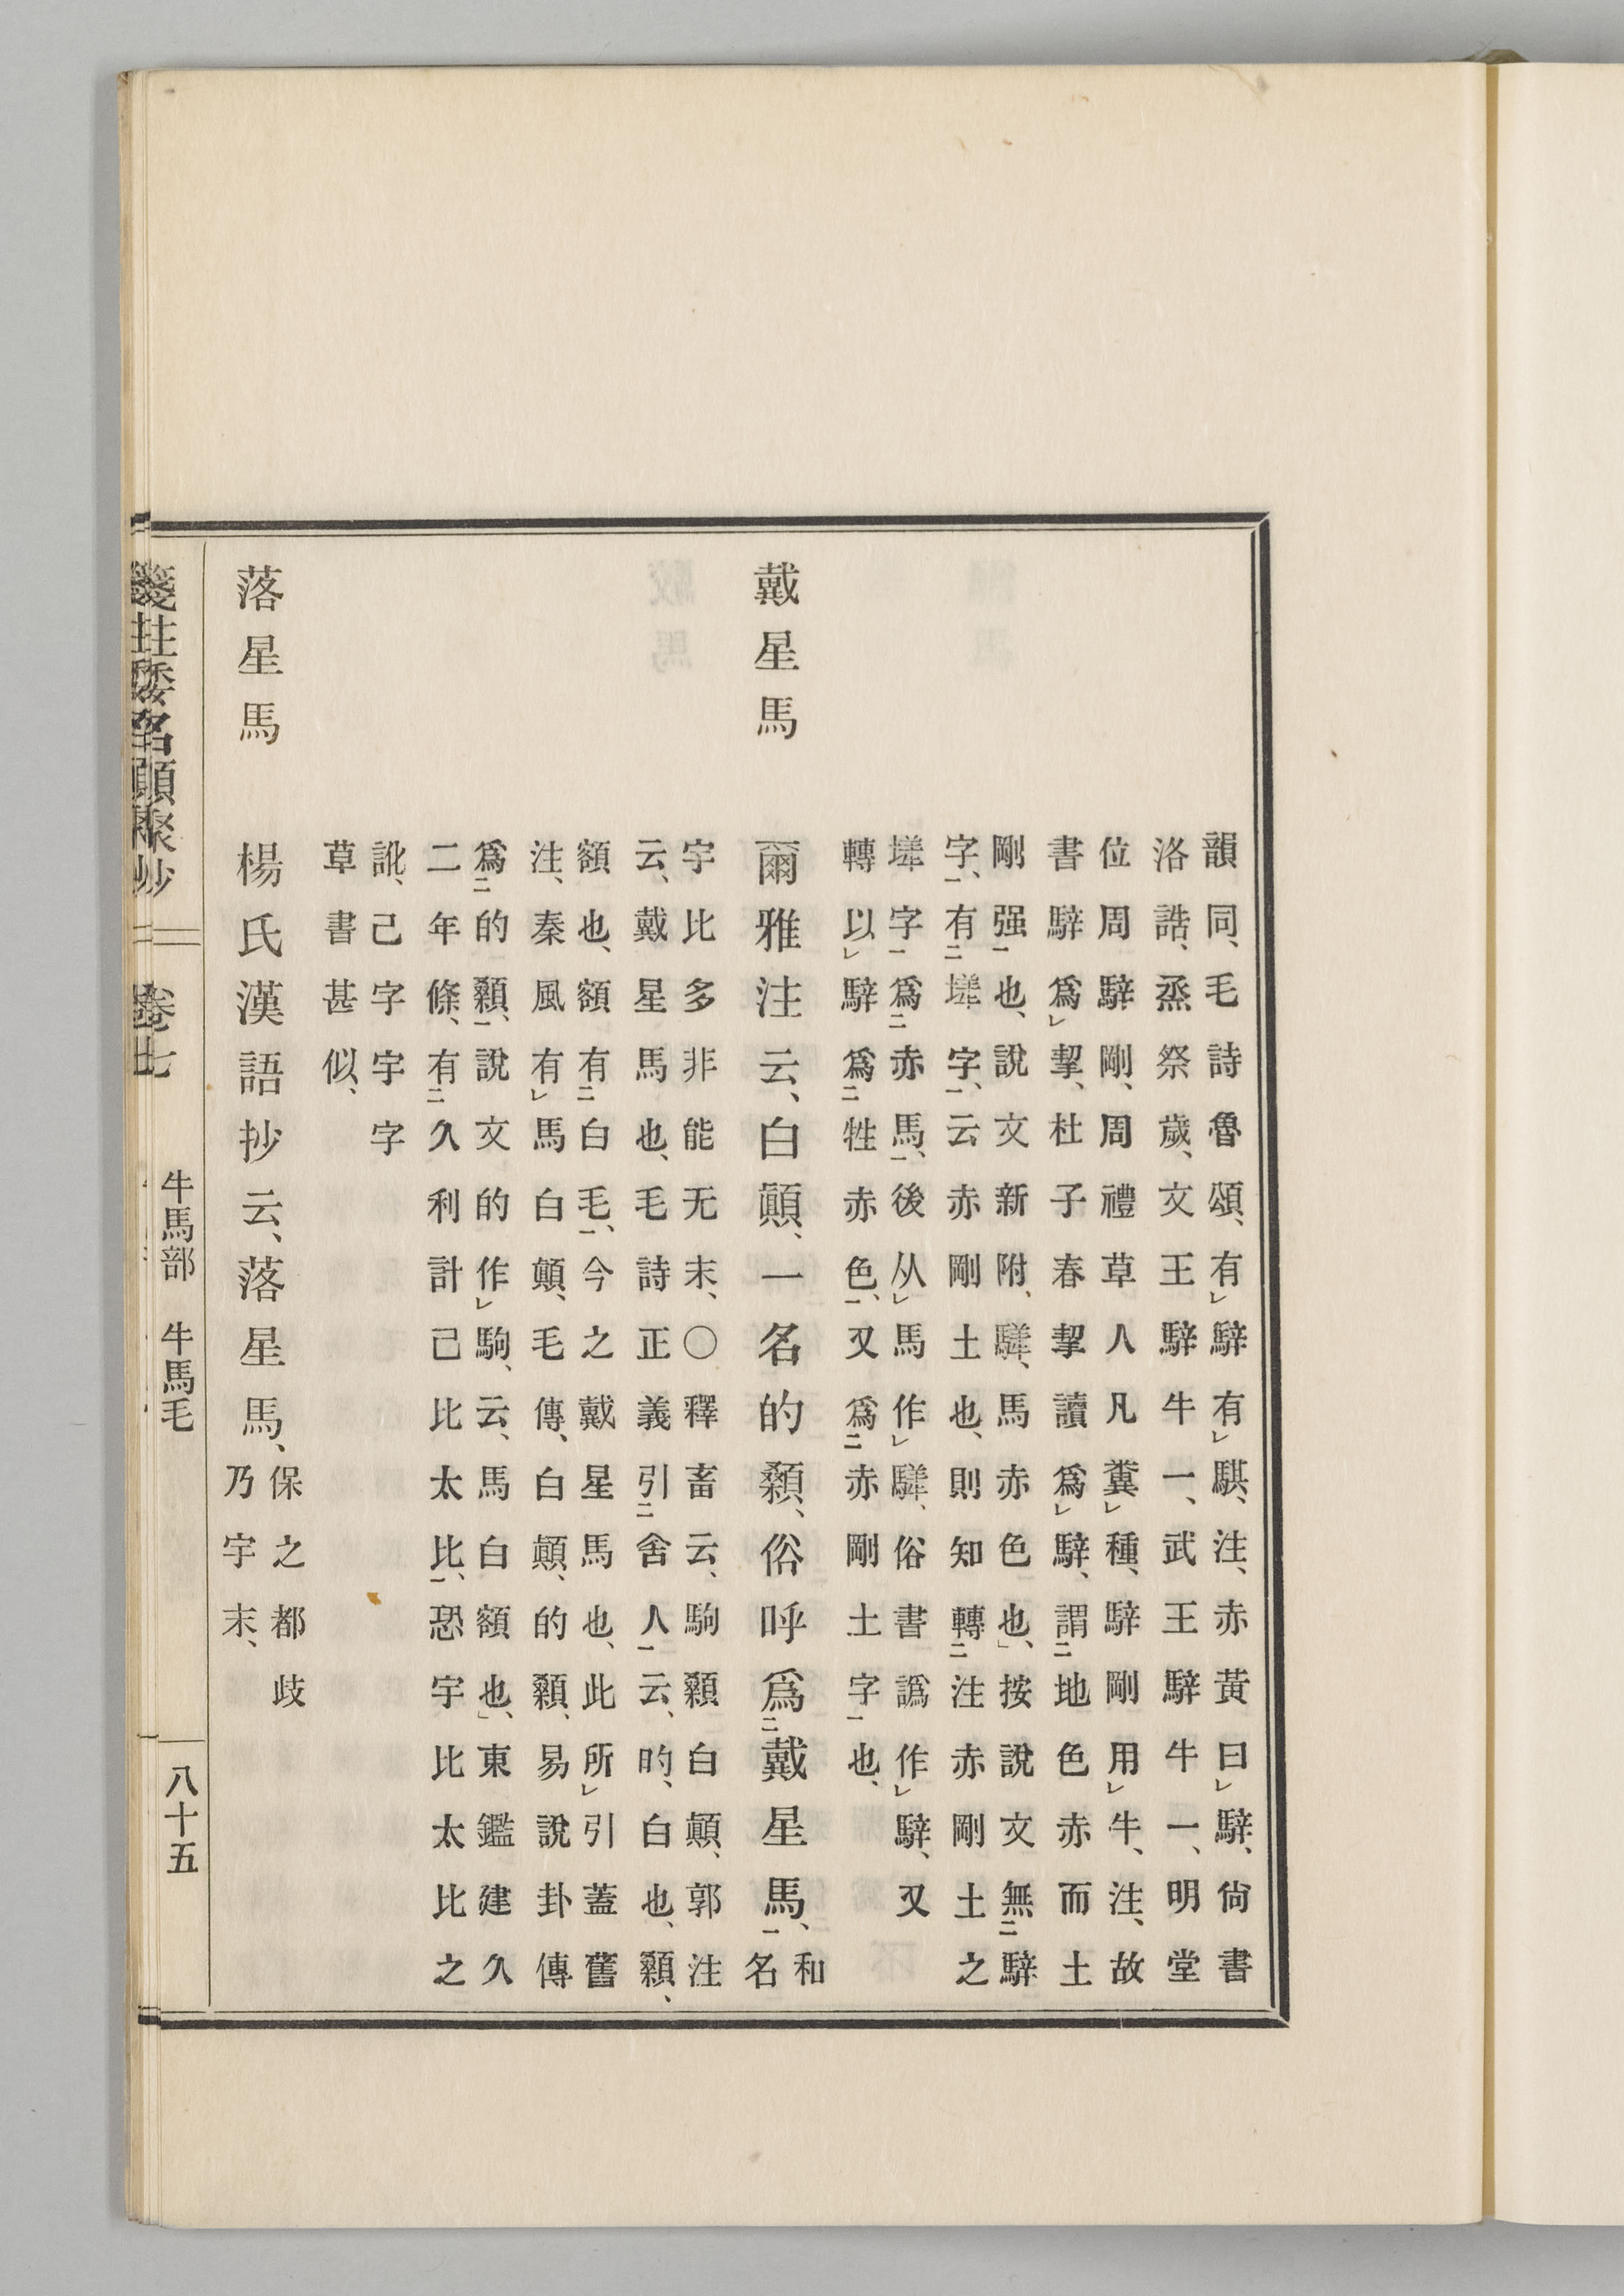 韻同、毛詩魯頌、有㆑騂有㆑騏、注、赤黃曰㆑騂、尙書
洛誥、烝祭歲、文王騂牛一、武王騂牛一、明堂
位周騂剛、周禮草人凡糞㆑種、騂剛用㆑牛、注、故
書騂爲㆑挈、杜子春挈讀爲㆑騂、謂㆓地色赤而土
剛强㆒也、說文新附、驊、馬赤色也、按說文無㆓騂
字㆒、有㆓墡字㆒、云赤剛土也、則知轉㆓注赤剛土之
墡字㆒爲㆓赤馬㆒、後从㆑馬作㆑驊、俗書譌作㆑騂、又
轉以㆑騂爲㆓牲赤色㆒、又爲㆓赤剛土字㆒也、
戴星馬
爾雅注云、白顚、一名的顙、俗呼爲㆓戴星馬㆒、和名
宇比多非能无末、〇釋畜云、駒顙白顚、郭注
云、戴星馬也、毛詩正義引㆓舍人㆒云、的、白也、顙、
額也、額有㆓白毛㆒、今之戴星馬也、此所㆑引蓋舊
注、秦風有㆑馬白顚、毛傳、白顚、的顙、易說卦傳
爲㆓的顙㆒、說文的作㆑駒、云、馬白額也、東鑑建久
二年條、有㆓久利計己比太比㆒、恐宇比太比之
訛、己字宇字
草書甚似、
落星馬
楊氏漢語抄云、落星馬、保之都歧
乃宇末、
箋注倭名類聚抄 卷七
牛馬部 牛馬毛
八十五